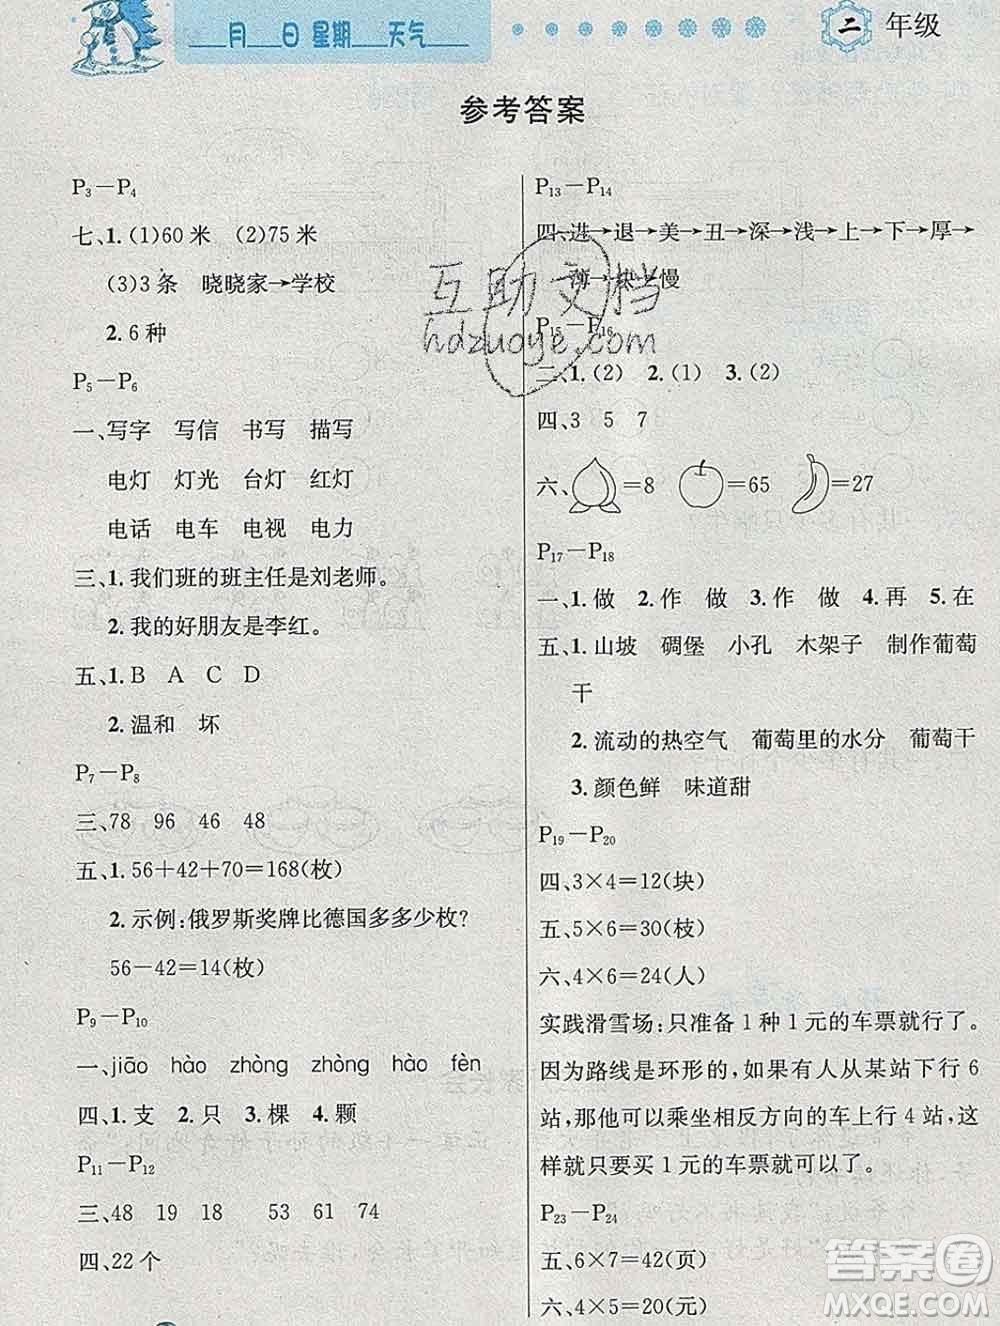 月 日 星期 天气
二 年级
参考答案
P₃－P₄
七、1. (1)60 米 (2)75 米
(3)3 条 晓晓家→学校
2. 6 种
P₅－P₆
一、写字 写信 书写 描写
电灯 灯光 台灯 红灯
电话 电车 电视 电力
三、1. 我们班的班主任是刘老师。
2. 我的好朋友是李红。
五、1. B A C D
2. 温和 坏
P₇－P₈
三、78 96 46 48
五、1. 56＋42＋70＝168(枚)
2. 示例:俄罗斯奖牌比德国多多少枚?
56－42＝14(枚)
P₉－P₁₀
一、jiāo hào zhòng zhòng hào fèn
四、1. 支 2. 只 3. 棵 4. 颗
P₁₁－P₁₂
三、48 19 18 53 61 74
四、22 个
P₁₃－P₁₄
四、进→退→美→丑→深→浅→上→下→厚→
薄→快→慢
P₁₅－P₁₆
二、1. (2) 2. (1) 3. (2)
四、3 5 7
六、＝8 ＝65 ＝27
P₁₇－P₁₈
一、1. 做 2. 作 做 3. 作 做 4. 再 5. 在
五、1. 山坡 碉堡 小孔 木架子 制作葡萄
干
2. 流动的热空气 葡萄里的水分 葡萄干
3. 颜色鲜 味道甜
P₁₉－P₂₀
四、3×4＝12(块)
五、5×6＝30(元)
六、4×6＝24(人)
实践滑雪场:只准备 1 种 1 元的车票就行了。
因为路线是环形的,如果从某站下行 6
站,那他可以乘坐相反方向的车上行 4 站,这
样就只要买 1 元的车票就可以了。
P₂₃－P₂₄
五、6×7＝42(页)
六、4×5＝20(元)
互助文档
hdzuoye.com
答案圈
MXQE.COM